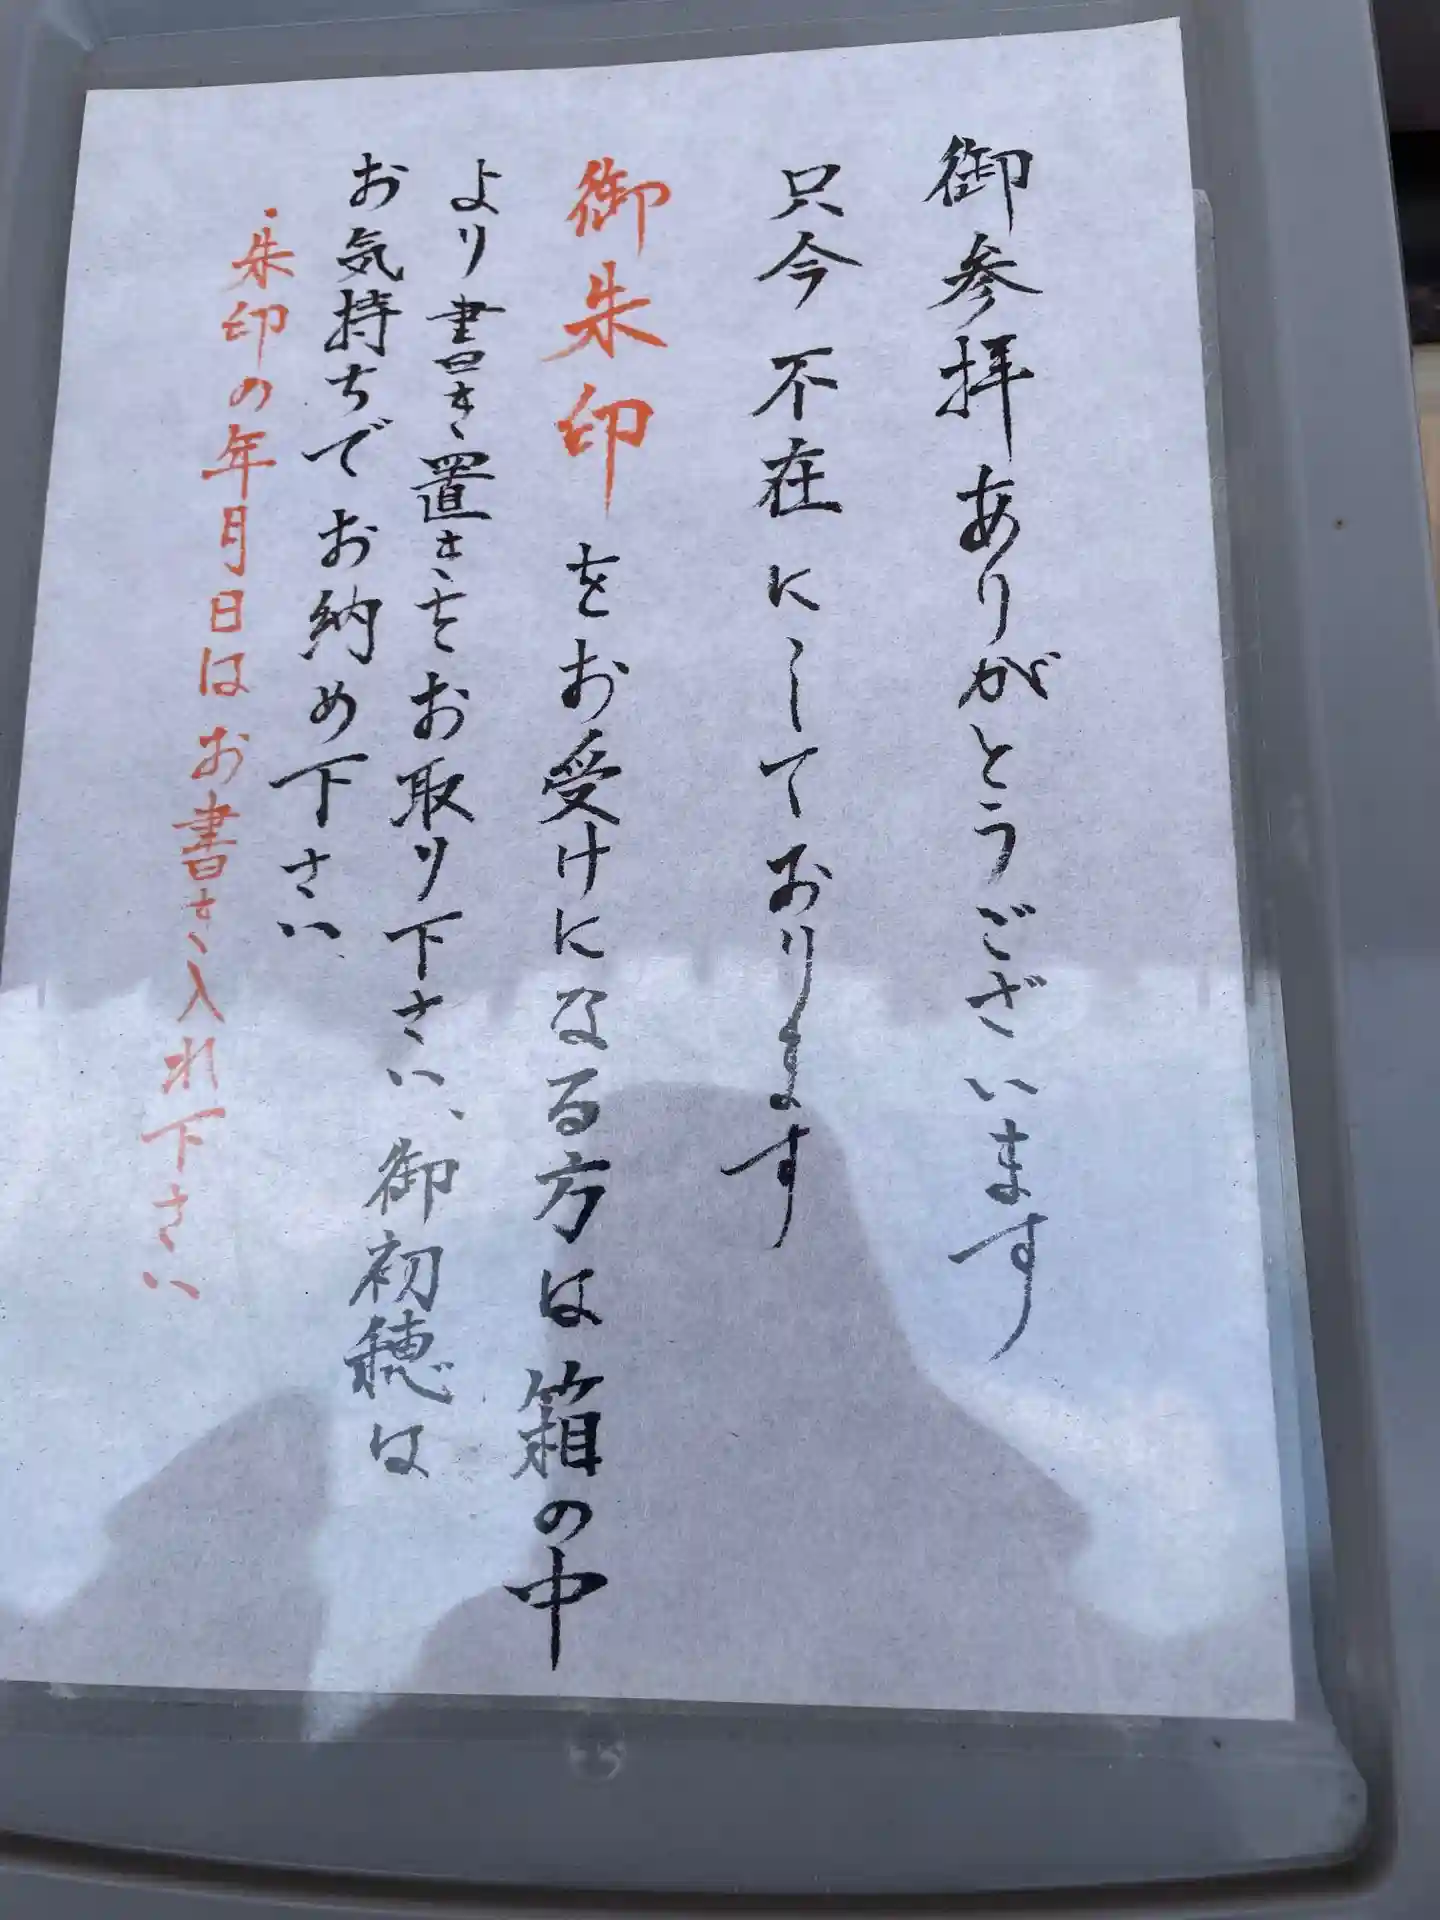 御参拝ありがとうございます
只今不在にしております
御朱印をお受けになる方は箱の中
より書き置きをお取り下さい、御初穂は
お気持ちでお納め下さい
・朱印の年月日はお書き入れ下さい